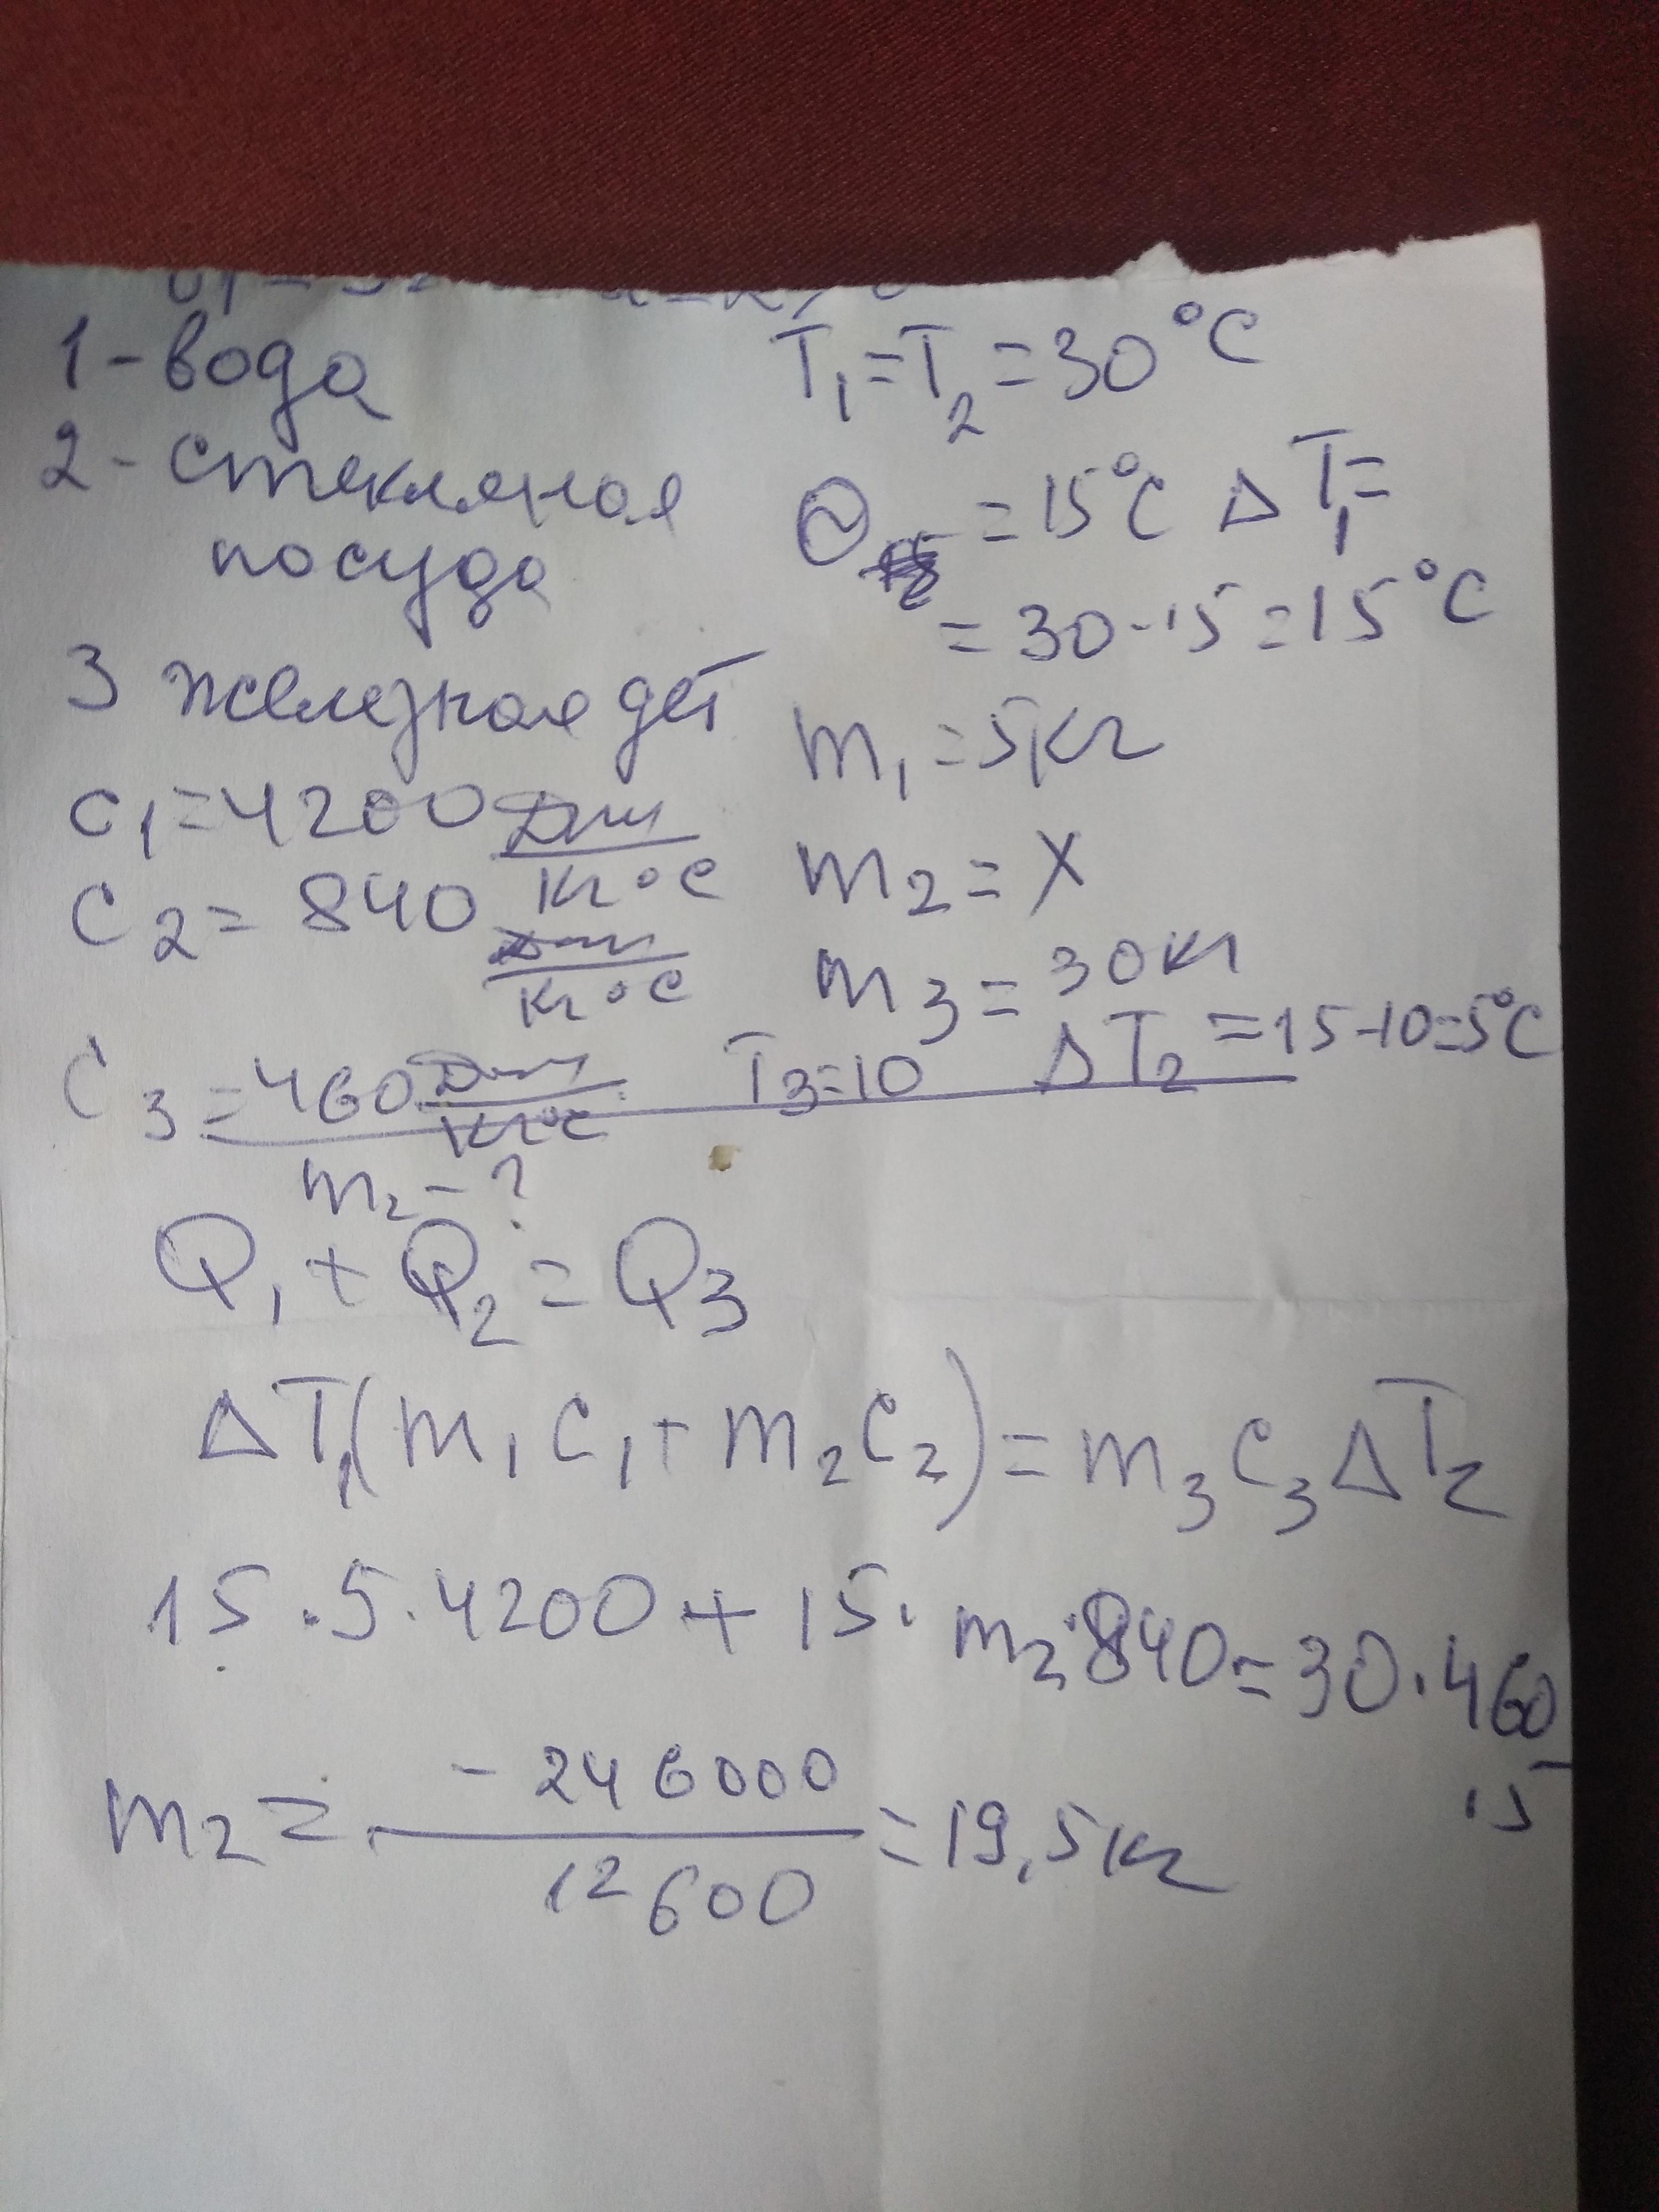 1-вода T₁=T₂=30°C
2-стекляная Θ =15°C ΔT₁=
посуда =30-15=15°C
3 железная дет m₁=5кг
C₁=4200 Дж/кг°C m₂=X
C₂=840 Дж/кг°C m₃=30кг
C₃=460 Дж/кг°C T₃=10 ΔT₂=15-10=5°C
m₂-?
Q₁+Q₂=Q₃
ΔT₁(m₁C₁+m₂C₂)=m₃C₃ΔT₂
15·5·4200+15·m₂·840=30·460
·5
m₂=-246000/12600=19,5кг